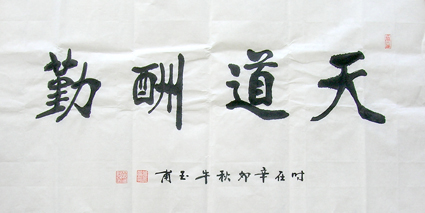 天道酬勤
时在辛卯秋牛玉甫